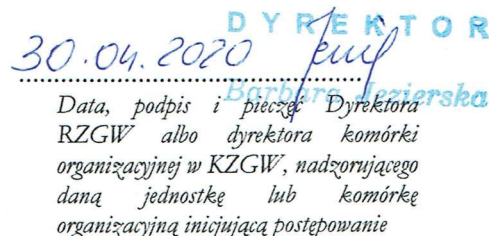 DYREKTOR
30.04.2020
Barbara Jezierska
Data, podpis i pieczęć Dyrektora
RZGW albo dyrektora komórki
organizacyjnej w KZGW, nadzorującego
daną jednostkę lub komórkę
organizacyjną inicjującą postępowanie